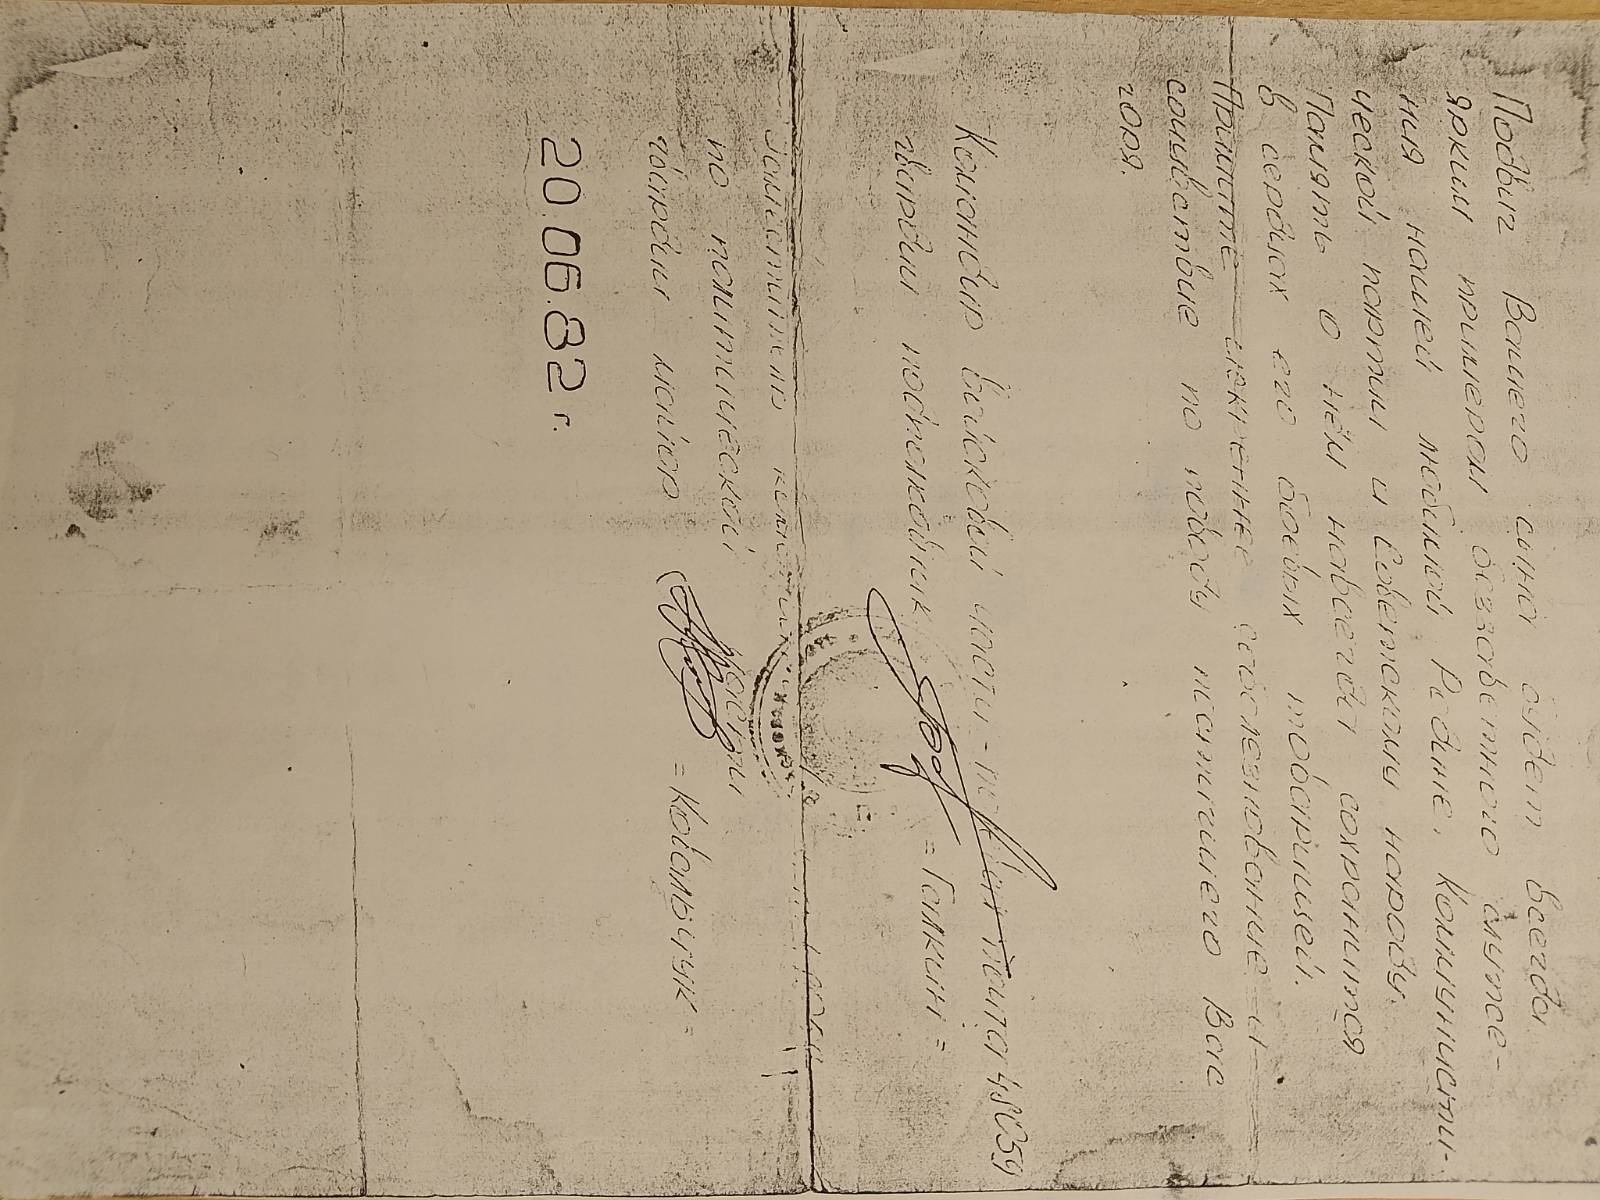 Подвиг Вашего сына будет всегда
ярким примером беззаветного служе-
ния нашей любимой Родине, Коммунисти-
ческой партии и Советскому народу.
Память о нём навсегда сохранится
в сердцах его боевых товарищей.
Примите искреннее соболезнование и
сочувствие по поводу постигшего Вас
горя.
Командир войсковой части - полевая почта 48059
гвардии подполковник = Галкин =
Заместитель командира войсковой части
по политической части
гвардии майор = Ковальчук =
20.06.82 г.